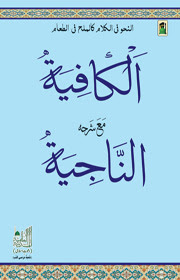 النحو في الكلام كالملح في الطعام
اَلْكَافِيَةُ
مَعَ شَرْحِهِ
النَّاجِيَةُ